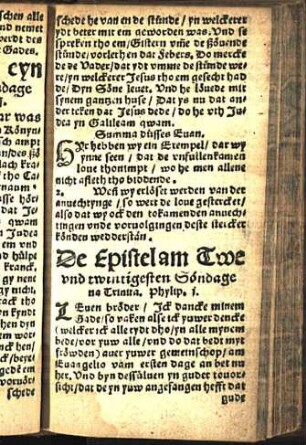 schen alle
vnd nemet
werdt des
Gades.
eyn
dage
ar was
Könyn/
ho Ca
naum.
dat Je
qwam
ea vnd
hülpe
kranck.
schede
schede he van en de stünde / yn welckerer
ydt beter mit em geworden was. Vnd se
spreken tho em / Gistern vmme de söuende
stünde / vorleth en dat Febers. Do mercke
de de Vader / dat ydt vmme de stünde we-
re / yn welckerer Jesus tho em gesecht had
de / Dyn Söne leuet. Vnd he löuede mit
synem gantzen huse / Dat ys nu dat an-
der teken dat Jesus dede / do he vth Ju-
dea yn Galileam qwam.
Summa düsses Euan.
Hyr hebben wy ein Exempel / dar wy
ynne seen / dat de vnfullenkamen
loue thonimpt / wo he men allene
nicht affleth tho biddende.
2. Wen wy erlöset werden van der
anuechtynge / so wert de loue gestercket /
also dat wy ock den tokamenden anuech-
tingen vnde voruolgingen deste stercker
könden wedderstän.
De Epistel am Twe
vnd twintigesten Söndage
na Trinita. Phylip. 1.
LEuen bröder / Ick dancke minem
Gade / so vaken alse ick yuwer dencke
(welcker ick alle tydt dho / yn alle mynem
bede / vor yuw alle / vnd do dat bedt my
fröwden) auer yuwer gemeinschop / am
Euangelio vam ersten dage an bet nu
her. Vnd byn dessüluen yn guder touor-
sicht / dat de yn yuw angefangen hefft dat
gude